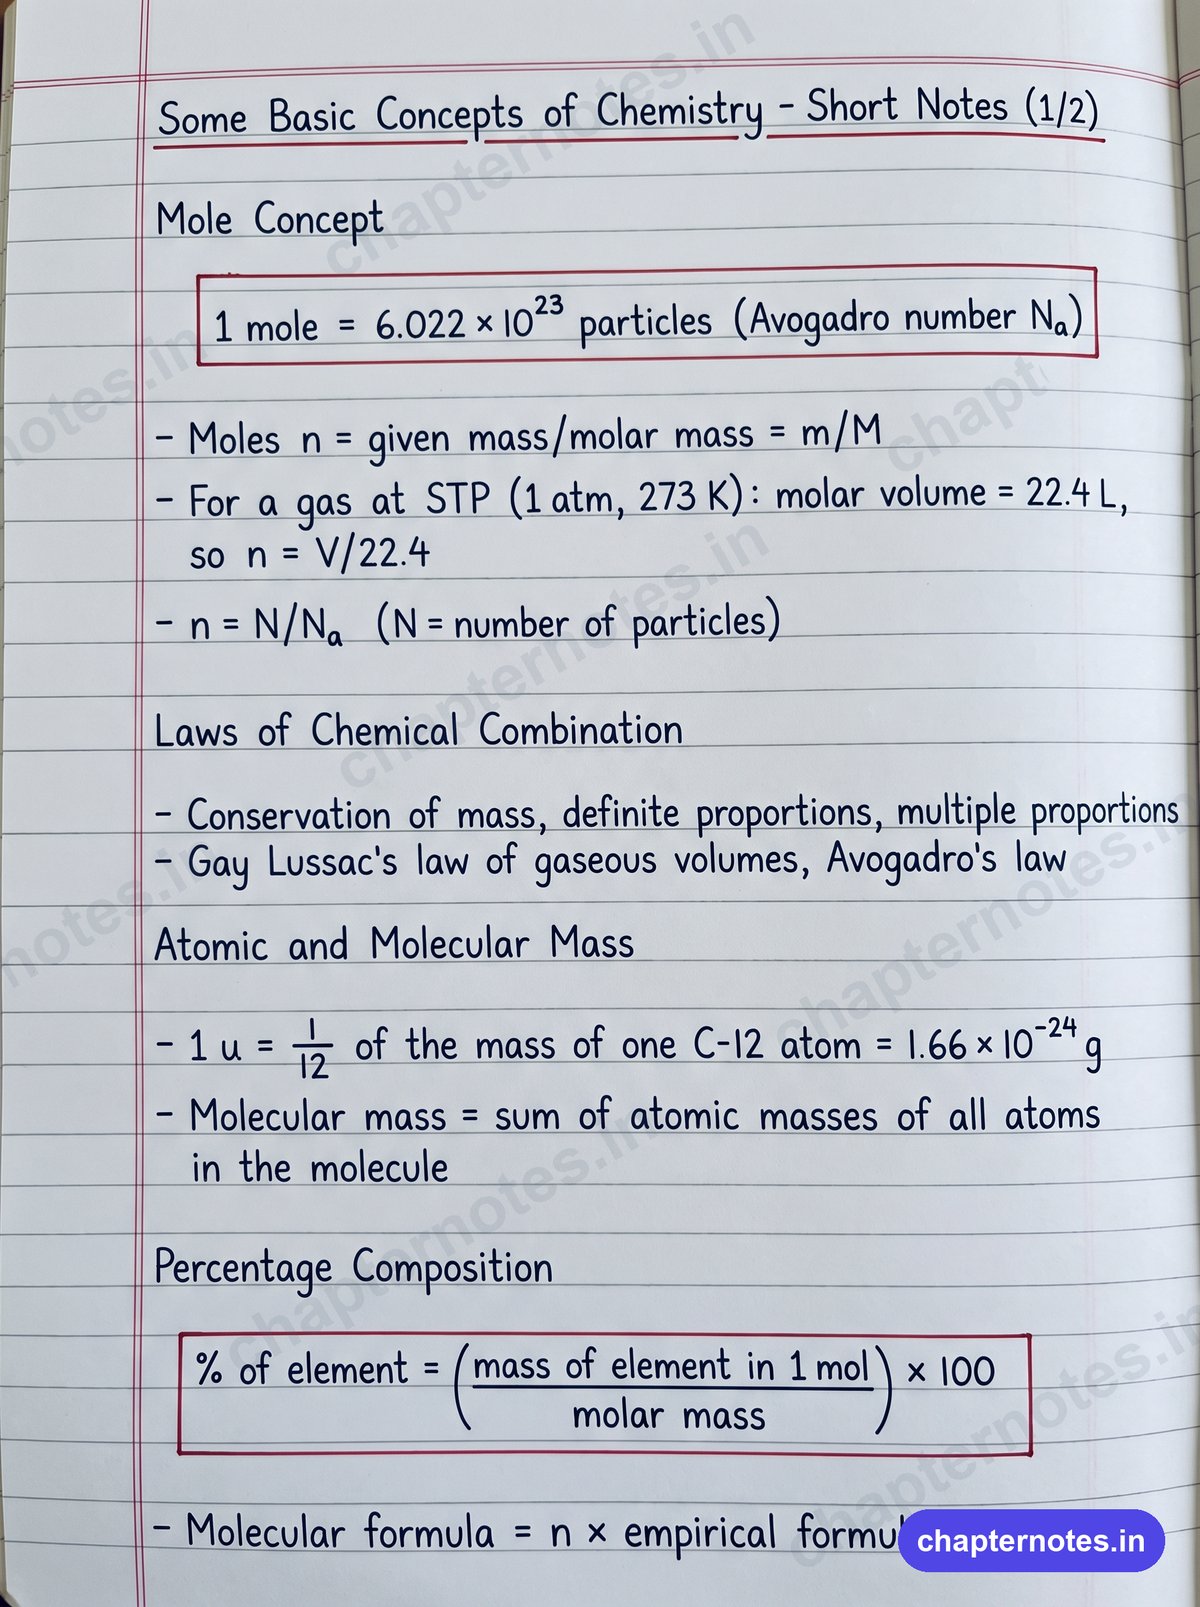 Some Basic Concepts of Chemistry - Short Notes (1/2)
Mole Concept
1 mole = 6.022 × 10²³ particles (Avogadro number Nₐ)
- Moles n = given mass/molar mass = m/M
- For a gas at STP (1 atm, 273 K): molar volume = 22.4 L,
so n = V/22.4
- n = N/Nₐ (N = number of particles)
Laws of Chemical Combination
- Conservation of mass, definite proportions, multiple proportions
- Gay Lussac's law of gaseous volumes, Avogadro's law
Atomic and Molecular Mass
- 1 u = 1/12 of the mass of one C-12 atom = 1.66 × 10⁻²⁴ g
- Molecular mass = sum of atomic masses of all atoms
in the molecule
Percentage Composition
% of element = (mass of element in 1 mol / molar mass) × 100
- Molecular formula = n × empirical
chapternotes.in